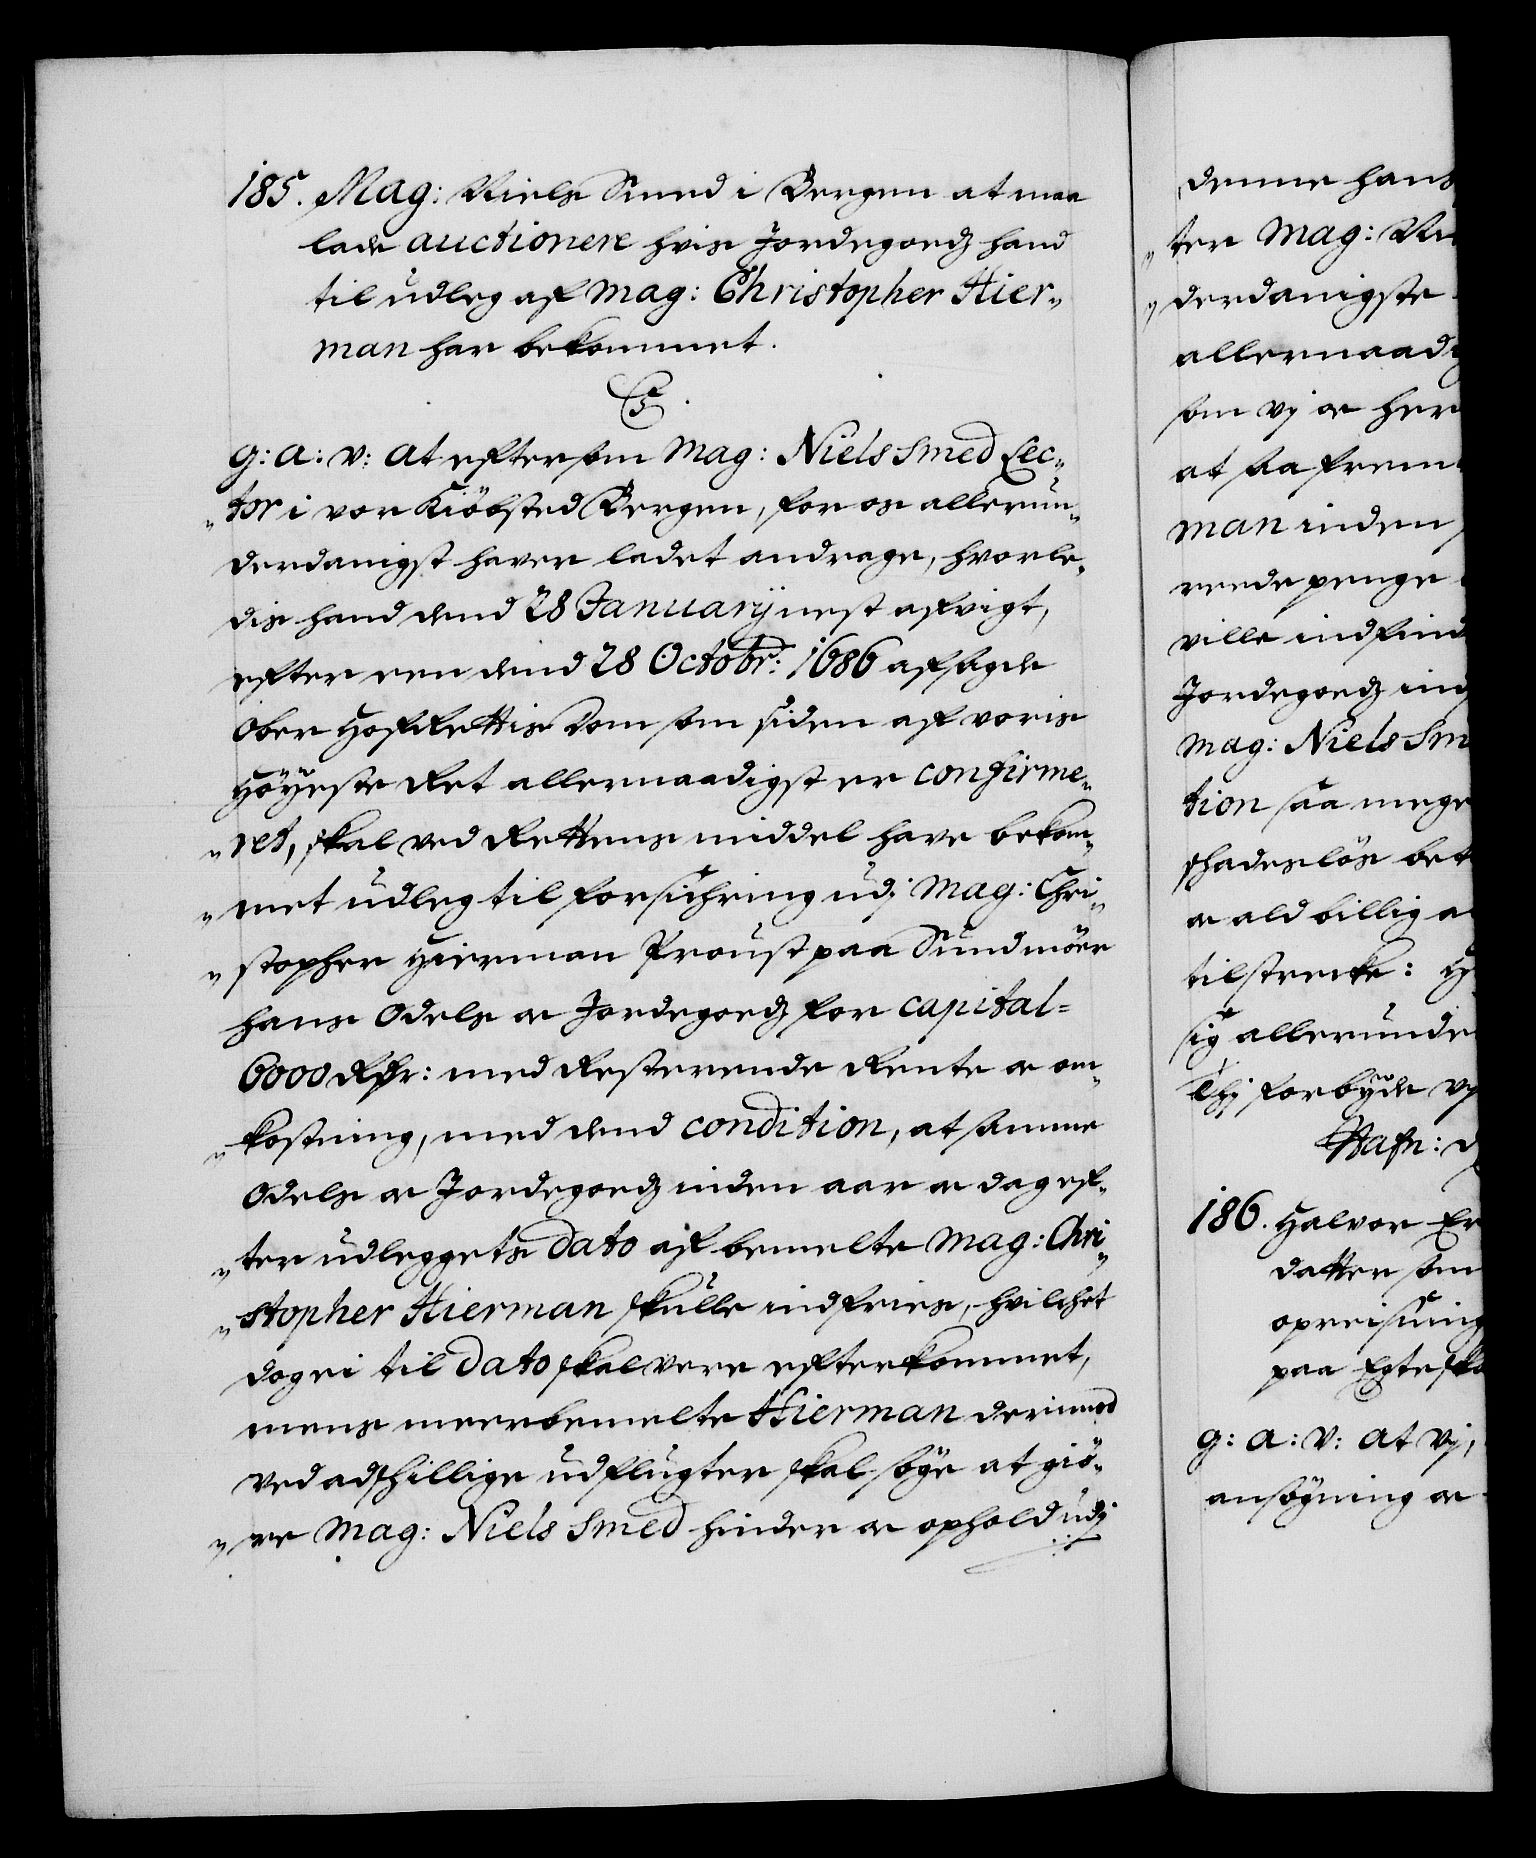 185. Mag: Niels Smed i Bergen at maa
lade auctionere hvis Jordegoedz hand
til udleg af Mag: Christopher Hier„
man har bekommet.
C5.
G: A: V: At eftersom Mag: Niels Smed Lec„
„tor i vor Kiöbsted Bergen, for os allerun„
derdanigst haver ladet andrage, hvorle„
dis hand dend 28 Januarij nest afvigt,
efter een dend 28 Octobr: 1686 afsagde
Ober Hof Rettis Dom som siden af voris
Höyeste Ret allernaadigst er confirme„
„ret, skal ved Rettens middel have bekom„
„met udleg til forsichring udj Mag: Chri„
„stopher Hierman Proust paa Sundmöer
hans Odels oc Jordegoedz for Capital=
6000 Rdr: med Resterende Rente oc om„
„kostning, med dend condition, at samme
Odels oc Jordegoedz inden aar oc dag ef„
„ter udleggets Dato af bemelte Mag: Chri„
„stopher Hierman skulle indfries, hvilchet
dog ei til Dato skal vere efterkommet,
mens meerbemelte Hierman derimod
ved adschillige udflugter skal söge at giö„
„re Mag: Niels Smed hinder oc ophold udj
denne hans
„ter Mag: Ni
„derdanigste
allernaad
som vj oc her
at saa frem
man inden
reede penge
ville indfind
Jordegoedz ind
Mag: Niels Sm
tion saa mege
schadeslös bet
oc ald billig
tilstrecke: H
sig allerunde
Thj forbyde vj
Hafn: d
186. Halvor Er
datter som
opreisning
paa Egtesk
G: A: V: At Vj,
ansögning oc